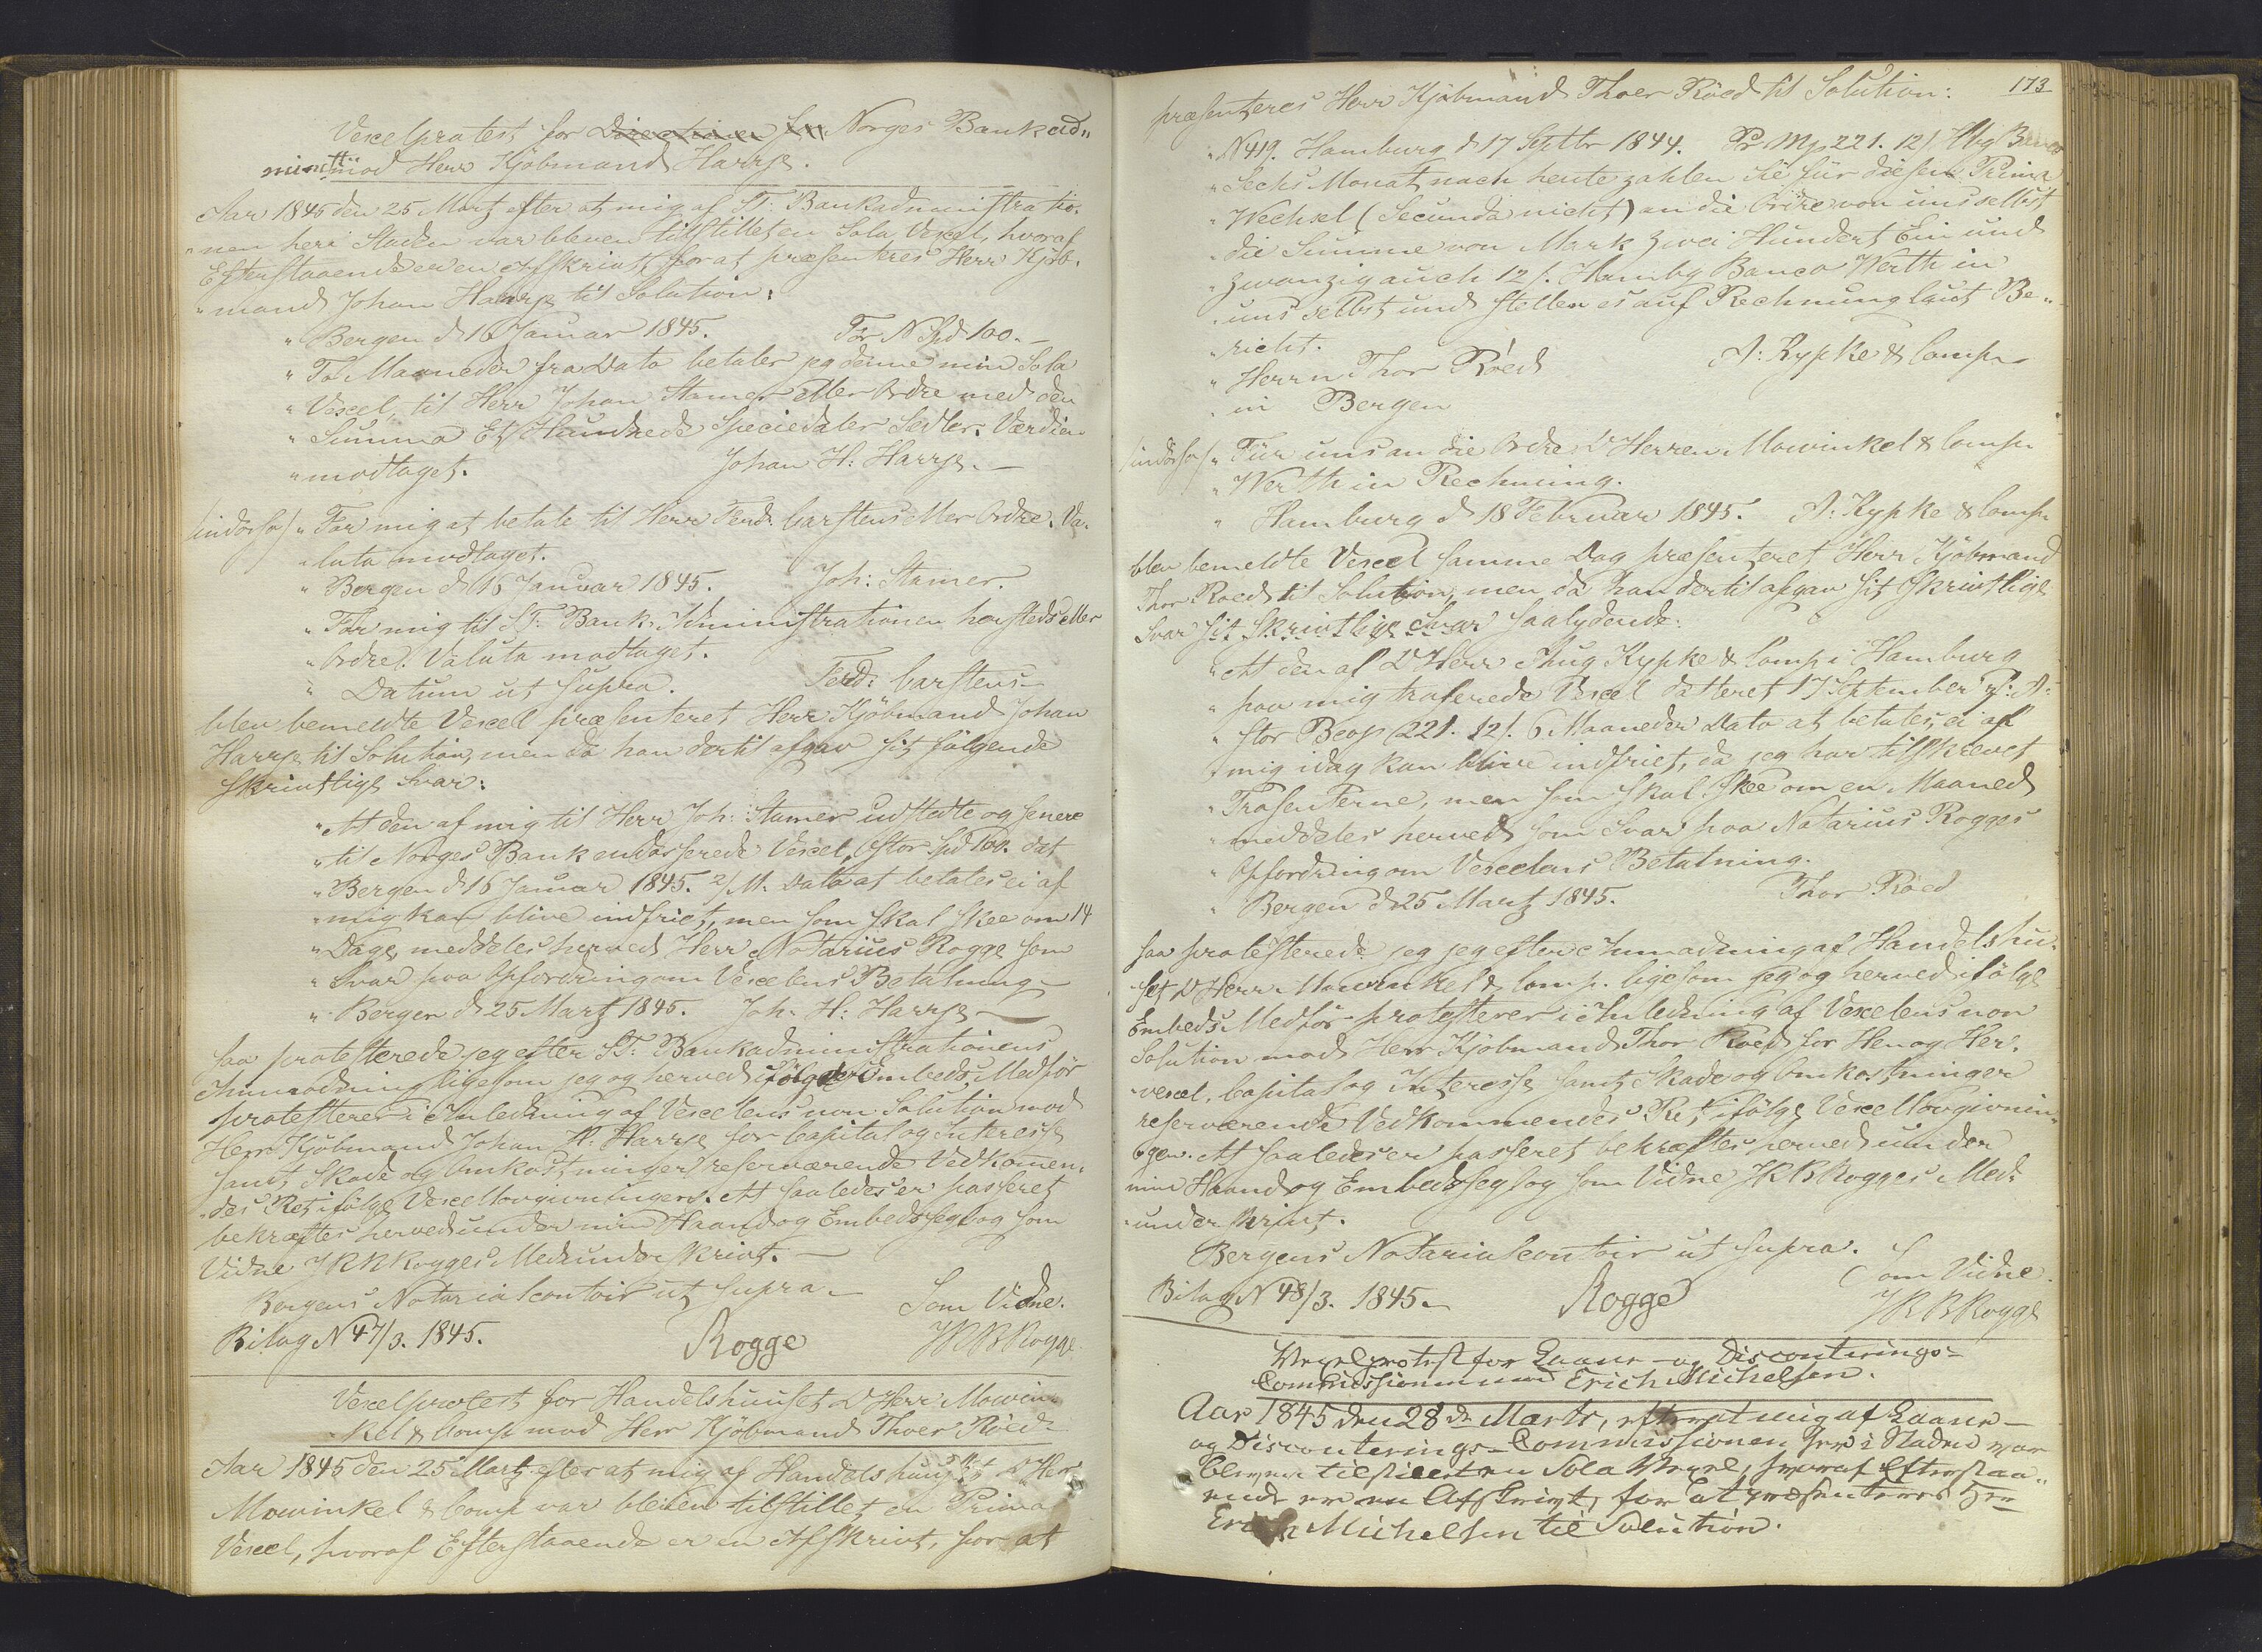 Vexelprotest for Directionen for Norges Bankad„
minstti mod Herr Kjöbmand Harrje.
Aar 1845 den 25 Martz efter at mig af S.T. Bankadministratio„
„nen her i Staden var bleven tilstillet en Sola Vexel, hvoraf
Efterstaaende er en Afskrivt, for at præsenteres Herr Kjöb„
„mand Johan Harrje til Solution:
„Bergen d 16 Januar 1845. For N Spd 100.–
„To Maaneder fra Dato betaler jeg denne min Sola
„Vexel, til Herr Johan Stamer eller Ordre med den
„Summa Et Hundrede Speciedaler Sedler. Værdien
„modtaget. Johan H: Harrje.–
/indorso/ „For mig at betale til Herr Ferd. Carstens eller Ordre. Va„
„luta modtaget.
„Bergen d 16 Januar 1845. Joh: Stamer.
„For mig til S.T. Bank-Administrationen hersteds eller
„Ordre. Valuta modtaget.
„Datum ut supra. Ferd: Carstens–
blev bemeldte Vexel præsenteret Herr Kjöbmand Johan
Harrje til Solution, men da han dertil afgav sit fölgende
skrivtlige Svar:
„At den af mig til Herr Joh: Stamer udstedte og senere
„til Norges Bank endosserede Vexel, stor Spd 100. dat
„Bergen d 16 Januar 1845. 2/M. Dato at betales ei af
„mig kan blive indfriet, men som skal skee om 14
„Dage, meddeles herved Herr Notarius Rogge som
„Svar paa Opfordring om Vexelens Betalning–
„Bergen d 25 Martz 1845. Joh. H: Harrje–
saa protesterede jeg efter S.T. Bankadministrationens
Anmodning ligesom jeg og herved ifölge Embeds Medför
protesterer i Anledning af Vexelens non Solution mod
Herr Kjöbmand Johan H: Harrje for Capital og Interesse
samt Skade og Omkostninger reserverende Vedkommen„
„des Ret ifölge Vexellovgivningen. At saaledes er passeret
bekræftes herved under min Haand og Embedssegl og som
Vidne JRBRogges Medunderskrivt.–
Bergens Notarialcontoir ut supra–
Som Vidne.
Bilag N 47/3. 1845. Rogge JRBRogge
Vexelprotest for Handelshuuset D'Herr Mowin„
„kel & Comp mod Herr Kjöbmand Thoer Röed–
Aar 1845 den 25 Martz efter at mig af Handelshuuset D'Herr
Mowinkel & Comp var bleven tilstillet en Prima
Vexel, hvoraf Efterstaaende er en Afskrivt, for at
173
præsenteres Herr Kjöbmand Thoer Röed til Solution:
„N 419. Hamburg d 17 Septbr 1844. Pr Mp 221. 12/. Hbg Banco
„Sechs Monat nach heute zahlen Sie für diesen Prima
„Wechsel (Secunda nicht) an die Ordre von uns selbst
„die Summe von Mark Zwei Hundert Ein und
„zwanzig auch 12/. Hambg Banco Werth in
„uns selbst und stellen es auf Rechnung laut Be„
„richt.
„Herrn Thor Röed A: Kypke & Comp–
„in Bergen
/indorso/ „Für uns an die Ordre D'Herren Mowinkel & Comp
„Werth in Rechnung.
„Hamburg d 18 Februar 1845. A: Kypke & Comp
blev bemeldte Vexel samme Dag præsenteret Herr Kjöbmand
Thor Röed til Solution, men da han dertil afgav sit skrivtlige
Svar sit skrivtlige Svar saalydende:
„At den af D'Herr Aug Kypke & Comp i Hamburg
„paa mig traserede Vexel datteret 17 September
„stor Bcop 221. 12/. 6 Maaneder Dato at betales, ei af
„mig idag kan blive indfriet, da jeg har tilskrevet
„Trasenterne, men som skal skee om en Maaned
„meddeles herved som Svar paa Notarius Rogges
„Opfordring om Vexelens Betalning.
„Bergen d 25 Martz 1845. Thor Röed
saa protesterede jeg jeg efter Anmodning af Handelshu„
„set D'Herr Mowinkel & Comp. ligesom jeg og herved ifölge
Embeds Medför protesterer i Anledning af Vexelens non
Solution mod Herr Kjöbmand Thor Röed for Hen og Her„
„vexel, Capital og Interesse samt Skade og Omkostninger
reserverende Vedkommendes Ret ifölge Vexellovgivnin„
„gen. At saaledes er passeret bekræftes herved under
min Haand og Embedssegl og som Vidne JRBRogges Med„
„underskrivt.
Bergens Notarialcontoir ut supra.
Som Vidne.
Bilag N 48/3. 1845– Rogge JRBRogge
Vexelprotest for Laane- og Disconterings-
Commissionen mod Erich Michelsen.
Aar 1845 den 28de Marts, efter at mig af Laane-
og Disconterings-Commissionen her i Staden var
bleven tilstillet en Sola Vexel, hvoraf Efterstaa„
ende er en Afskrivt, for at præsenteres Hr
Erich Michelsen til Solution.